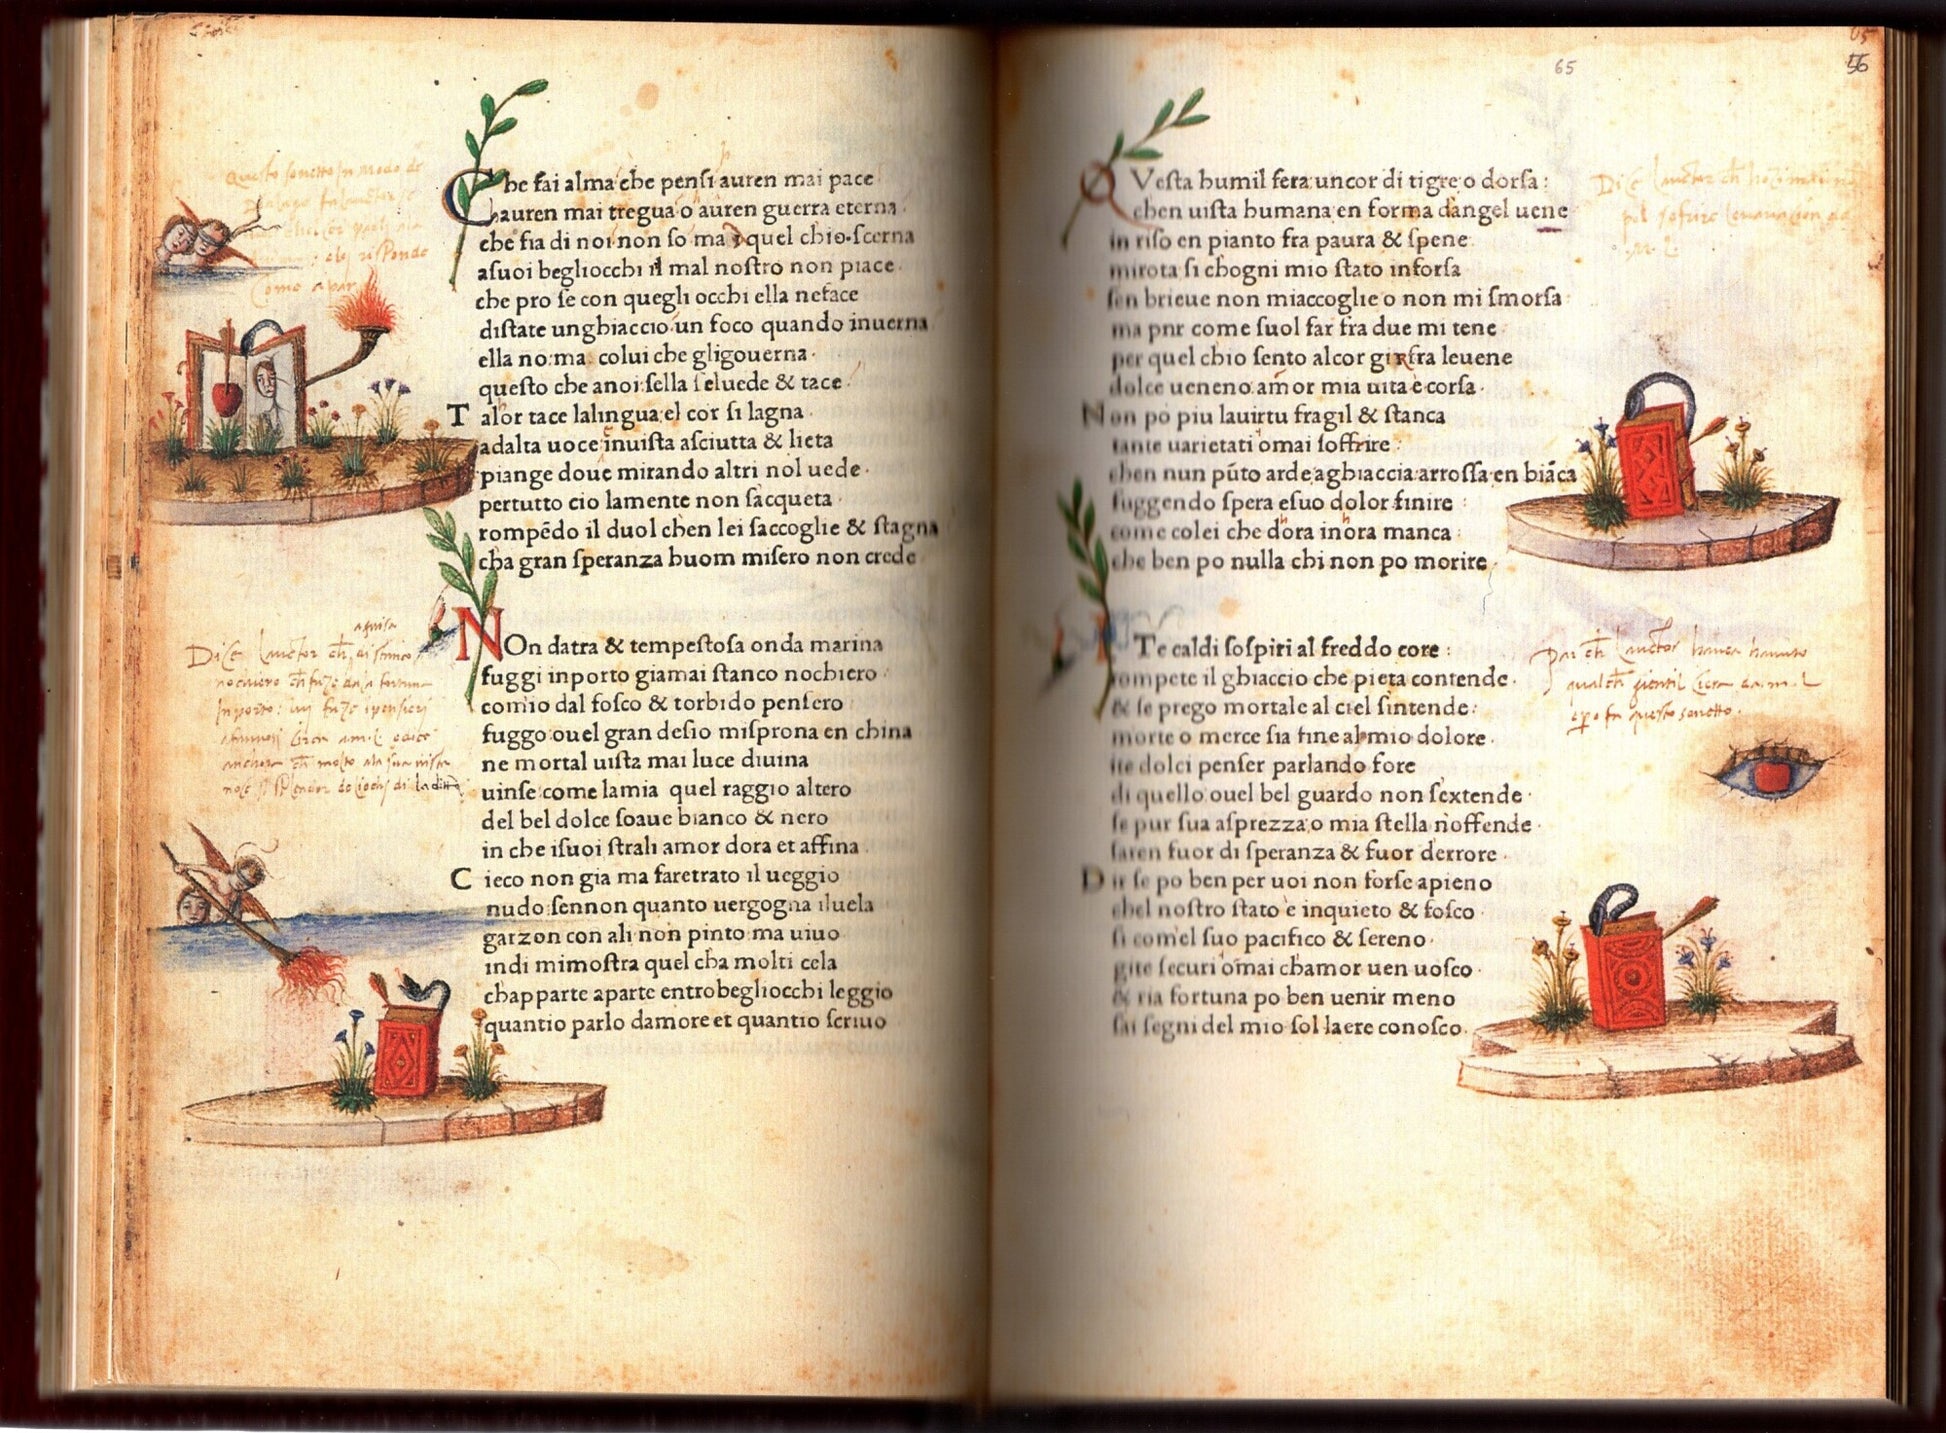 Che fai alma che pensi auren mai pace
auren mai tregua o auren guerra eterna
che fia di noi non so ma quel chio scerna
asuoi begliocchi il mal nostro non piace
che pro se con quegli occhi ella neface
distate unghiaccio un foco quando inuerna
ella no ma colui che gligouerna
questo che anoi sella seluede & tace
Talor tace lalingua el cor si lagna
adalta uoce inuista asciutta & lieta
piange doue mirando altri nol uede
pertutto cio lamente non sacqueta
rompēdo il duol chen lei saccoglie & stagna
cha gran speranza huom misero non crede
Dice lauctor
NOn datra & tempestosa onda marina
fuggi inporto giamai stanco nochiero
comio dal fosco & torbido pensero
fuggo ouel gran desio misprona en china
ne mortal uista mai luce diuina
uinse come lamia quel raggio altero
del bel dolce soaue bianco & nero
in che isuoi strali amor dora et affina
Cieco non gia ma faretrato il ueggio
nudo sennon quanto uergogna iluela
garzon con ali non pinto ma uiuo
indi mimostra quel cha molti cela
chapparte aparte entrobegliocchi leggio
quantio parlo damore et quantio scriuo
65
56
QVesta humil fera uncor di tigre o dorsa:
chen uista humana en forma dangel uene
in riso en pianto fra paura & spene
mirota si chogni mio stato inforsa
sen brieue non miaccoglie o non mi smorsa
ma pur come suol far fra due mi tene
per quel chio sento alcor gir fra leuene
dolce ueneno amor mia uita e corsa
Non po piu lauirtu fragil & stanca
tante uarietati omai soffrire:
chen nun pūto arde aghiaccia arrossa en biāca
fuggendo spera esuo dolor finire:
come colei che dora inora manca
che ben po nulla chi non po morire
ITe caldi sospiri al freddo core:
rompete il ghiaccio che pieta contende
& se prego mortale al ciel sintende:
morte o merce sia fine al mio dolore
ite dolci penser parlando fore
di quello ouel bel guardo non sextende
se pur sua asprezza o mia stella noffende
saren fuor di speranza & fuor derrore
Dir se po ben per uoi non forse apieno
chel nostro stato e inquieto & fosco
si comel suo pacifico & sereno
gite securi omai chamor uen uosco
& ria fortuna po ben uenir meno
sai segni del mio sol laere conosco